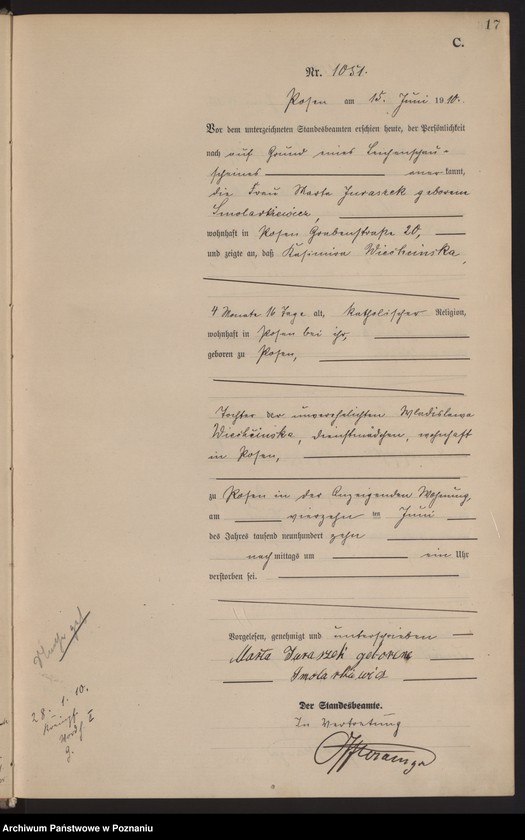 17
C.
Nr. 1051.
Posen am 15. Juni 1910.
Vor dem unterzeichneten Standesbeamten erschien heute, der Persönlichkeit
nach auf Grund eines Leichenschau-
scheines anerkannt,
die Frau Marta Juraszek geborene
Smolarkiewicz,
wohnhaft in Posen Grabenstraße 20,
und zeigte an, daß Kasimira
4 Monate 16 Tage alt, katholischer Religion,
wohnhaft in Posen bei ihr,
geboren zu Posen,
Tochter der unverehelichten Wladislawa
Dienstmädchen, wohnhaft
in Posen,
zu Posen in der Anzeigenden Wohnung,
am vierzehn ten Juni
des Jahres tausend neunhundert zehn
nachmittags um ein Uhr
verstorben sei.
Vorgelesen, genehmigt und unterschrieben
Marta Juraszek geborene
Smolarkiewicz
Der Standesbeamte.
In Vertretung
28. 1. 10.
Archiwum Państwowe w Poznaniu